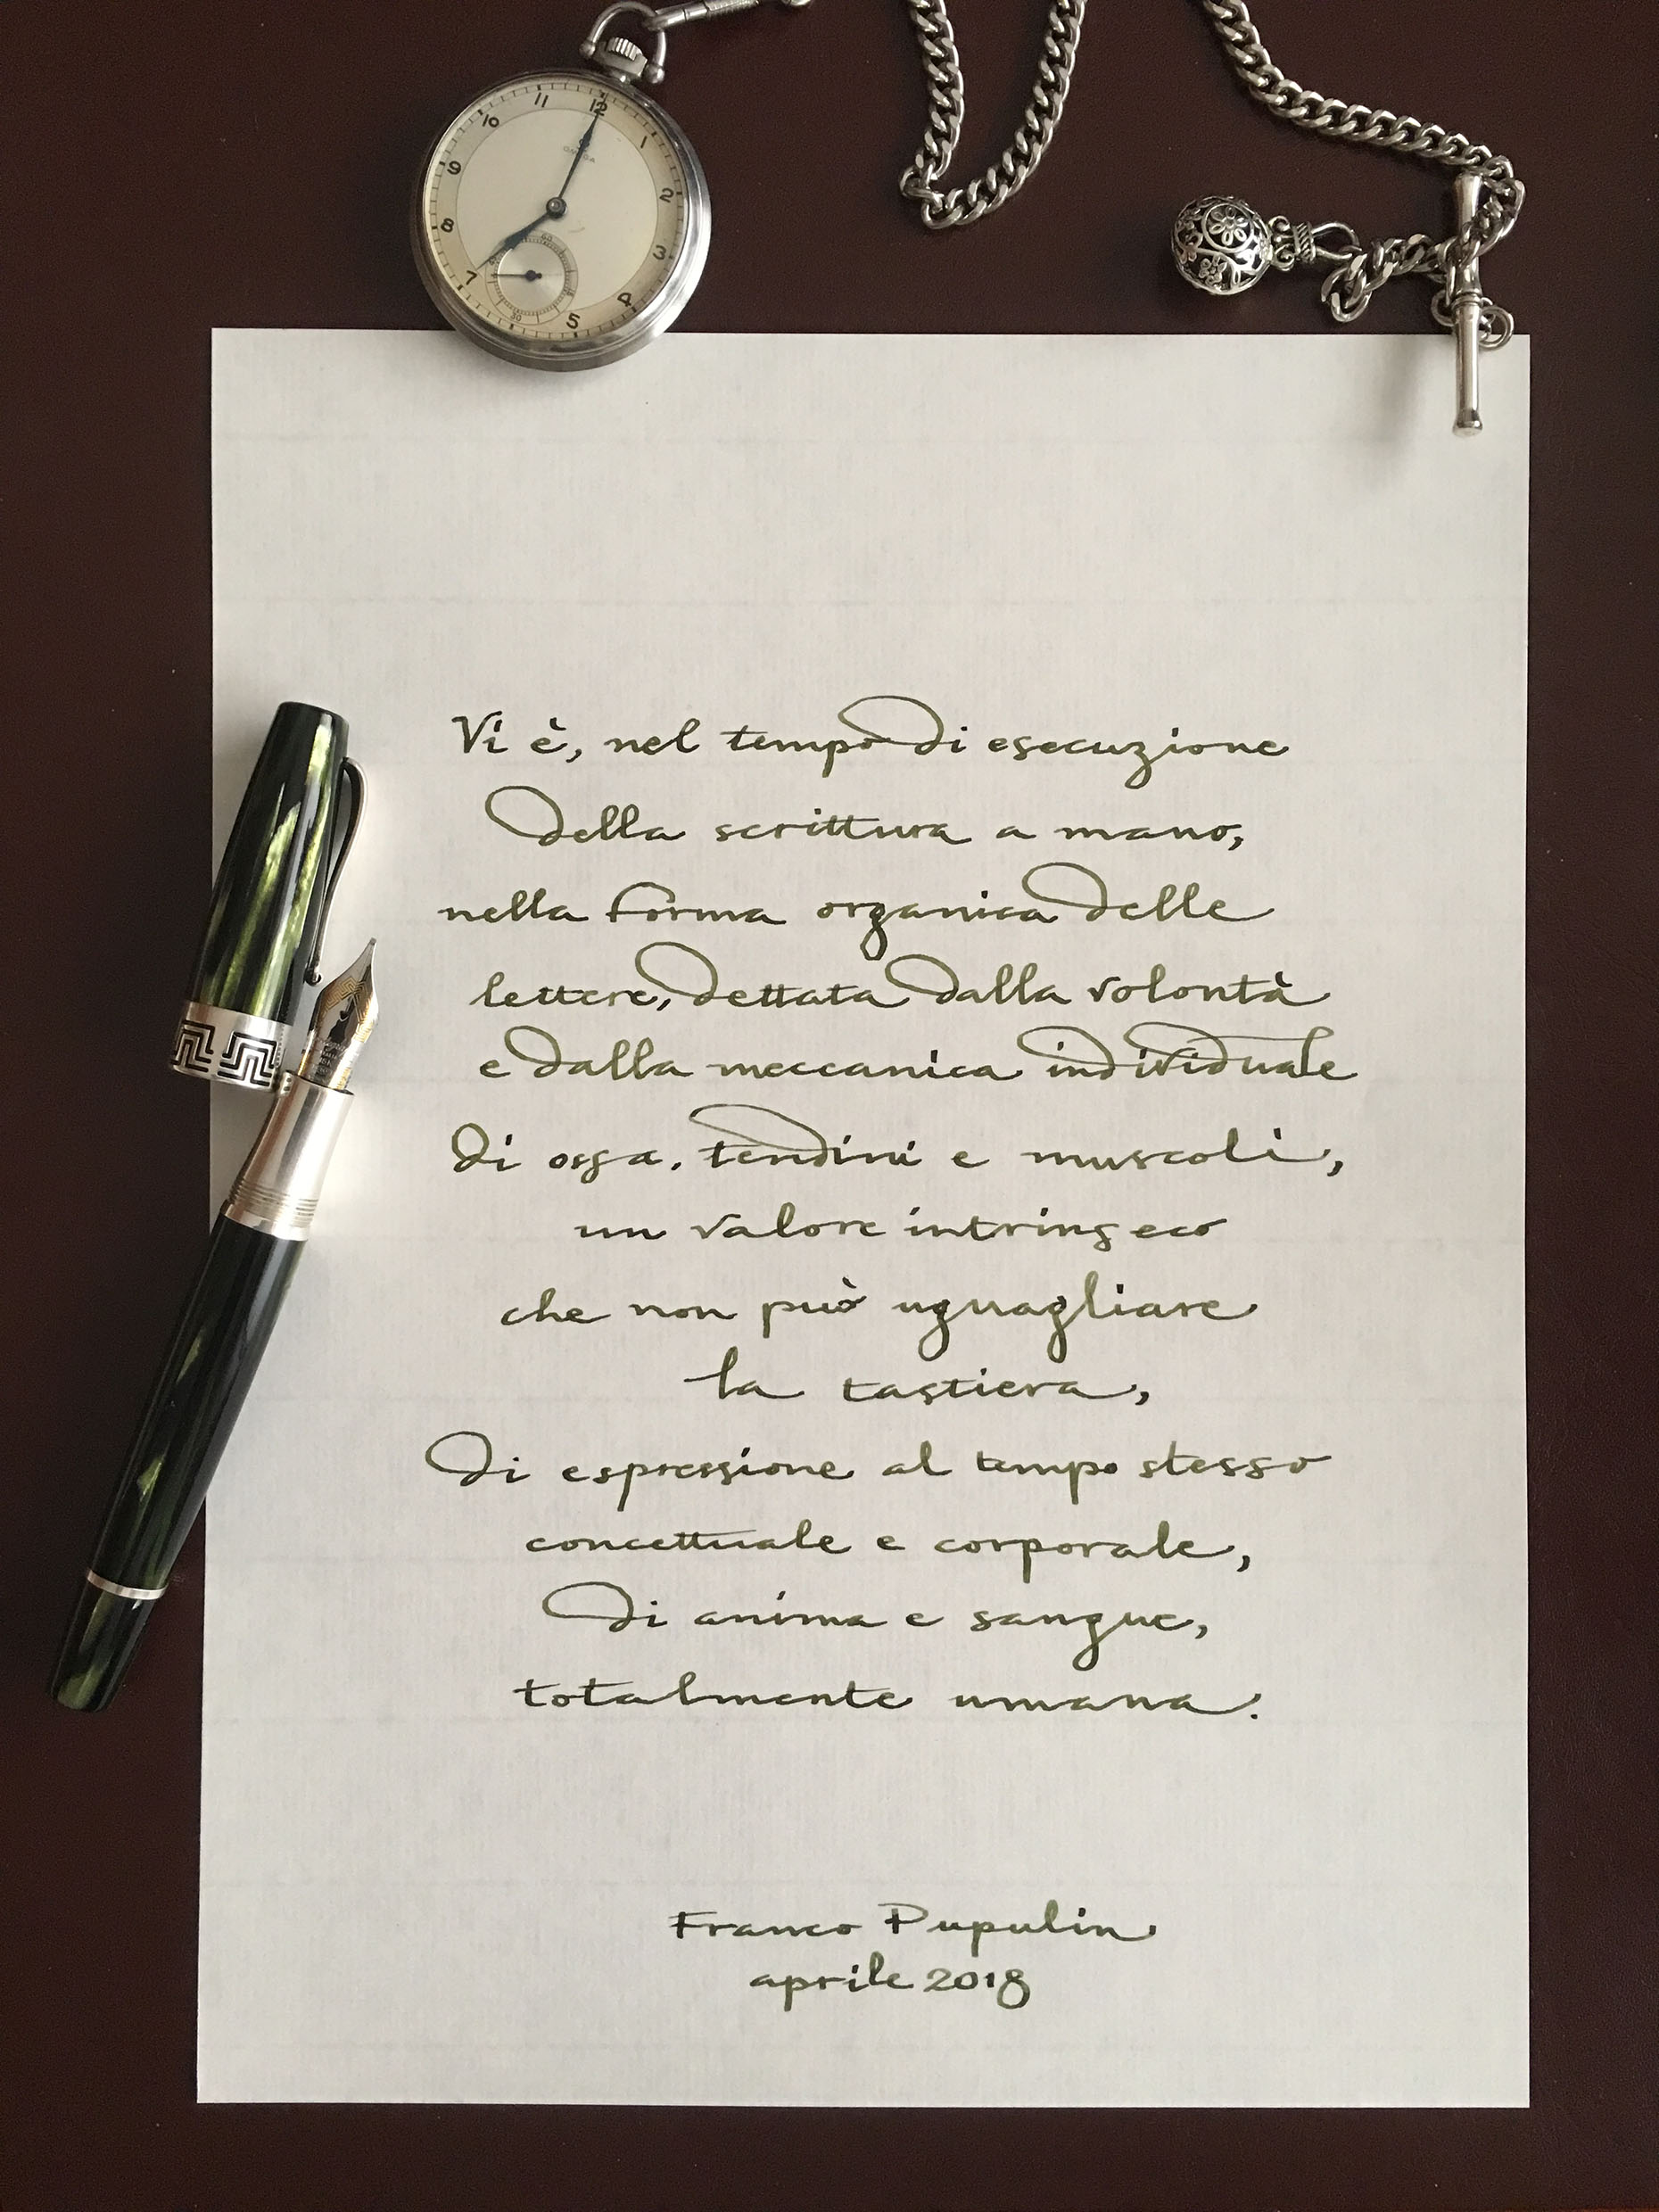 11 12 1
10 2
9 3
8 4
7 5
OMEGA
60
30
Vi è, nel tempo di esecuzione
della scrittura a mano,
nella forma organica delle
lettere, dettata dalla volontà
e dalla meccanica individuale
di ossa, tendini e muscoli,
un valore intrinseco
che non può uguagliare
la tastiera,
di espressione al tempo stesso
concettuale e corporale,
di anima e sangue,
totalmente umana.
Franco Pupulin
aprile 2018